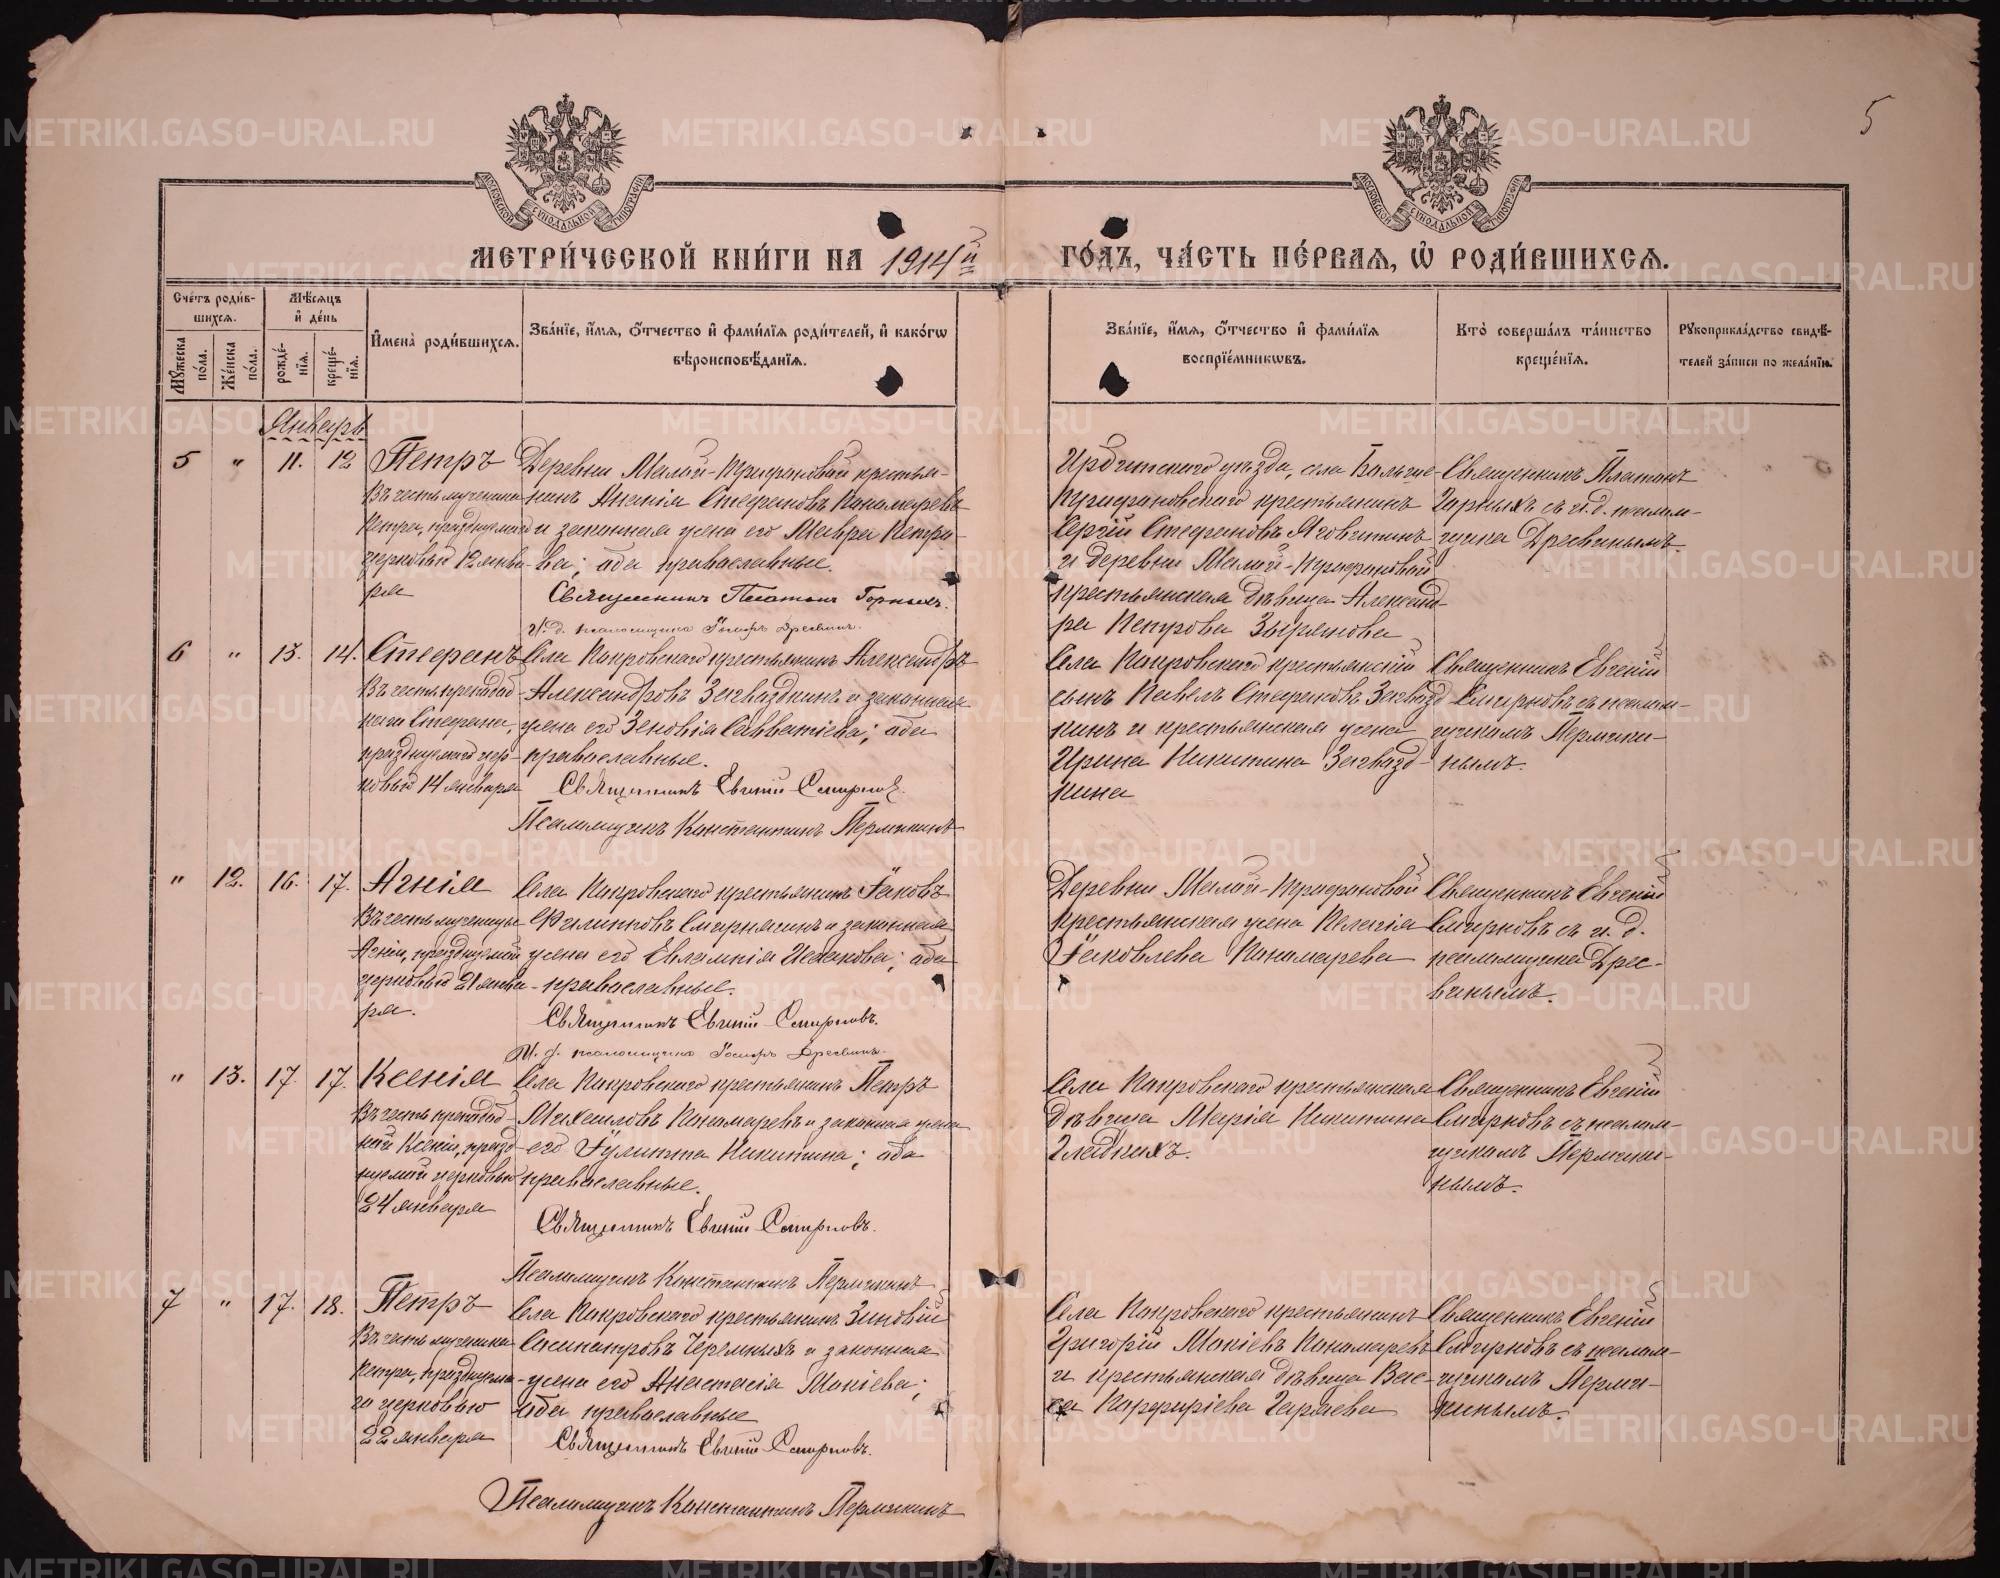 5
МОСКОВСКОЙ СѴНОДАЛЬНОЙ ТИПОГРАФІИ
МОСКОВСКОЙ СѴНОДАЛЬНОЙ ТИПОГРАФІИ
МЕТРИ́ЧЕСКОЙ КНИ́ГИ НА 1914й ГО́ДЪ, ЧА́СТЬ ПЕ́РВАЯ, Ѡ҆ РОДИ́ВШИХСЯ.
Сче́тъ роди́в-
шихся.
Мꙋ́жеска по́ла.
Же́нска по́ла.
Мѣ́сяцъ
и҆ де́нь
рожде́-
нїя.
креще́-
нїя.
И҆мена̀ роди́вшихся.
Зва́нїе, и҆́мя, ѻ҆́тчество и҆ фами́лїя роди́телей, и҆ како́гѡ
вѣроисповѣ́данїя.
Зва́нїе, и҆́мя, ѻ҆́тчество и҆ фами́лїя
воспрїе́мникѡвъ.
Кто̀ соверша́лъ та́инство
креще́нїя.
Рꙋкоприкла́дство свидѣ́-
телей за́писи по жела́нїю.
Январь
5 " 11. 12 Петръ
Въ честь мученика
Петра, празднуемаго
церковью 12 янва-
ря
Деревни Малой-Трифоновой крестья-
нинъ Ананія Стефановъ Пономаревъ
и законная жена его Мавра Петро-
ва; оба православные.
Священникъ Платонъ Горныхъ.
И. д. псаломщика Іосифъ Дресвинъ.
Ирбитскаго уѣзда, села Больше-
Трифоновскаго крестьянинъ
Сергій Стефановъ Яговитинъ
и деревни Малой-Трифоновой
крестьянская дѣвица Александ-
ра Петрова Зырянова
Священникъ Платонъ
Горныхъ съ и. д. псалом-
щика Дресвинымъ.
6 " 13. 14. Стефанъ
Въ честь преподоб-
наго Стефана,
празднуемаго цер-
ковью 14 января
Села Покровскаго крестьянинъ Александръ
Александровъ Загвоздкинъ и законная
жена его Зеновія Савватіева; оба
православные.
Священникъ Евгеній Смирновъ.
Псаломщикъ Константинъ Пермикинъ
Села Покровскаго крестьянскій
сынъ Павелъ Стефановъ Загвозд-
кинъ и крестьянская жена
Ирина Никитина Загвозд-
кина
Священникъ Евгеній
Смирновъ съ псалом-
щикомъ Пермики-
нымъ.
" 12. 16. 17. Агнія
Въ честь мученицы
Агніи, празднуемой
церковью 21 янва-
ря.
Села Покровскаго крестьянинъ Іаковъ
Филипповъ Смирнягинъ и законная
жена его Евлампія Исакова; оба
православные.
Священникъ Евгеній Смирновъ.
И. д. псаломщика Іосифъ Дресвинъ.
Деревни Малой-Трифоновой
крестьянская жена Пелагія
Іаковлева Пономарева
Священникъ Евгеній
Смирновъ съ и. д.
псаломщика Дрес-
винымъ.
" 13. 17. 17. Ксенія
Въ честь преподоб-
ной Ксеніи, празд-
нуемой церковью
24 января
Села Покровскаго крестьянинъ Петръ
Михаиловъ Пономаревъ и законная жена
его Іулитта Никитина; оба
православные.
Священникъ Евгеній Смирновъ.
Псаломщикъ Константинъ Пермикинъ
Села Покровскаго крестьянская
дѣвица Марія Никитина
Гладкихъ.
Священникъ Евгеній
Смирновъ съ псалом-
щикомъ Пермики-
нымъ.
7 " 17. 18. Петръ
Въ честь мученика
Петра, празднуема-
го церковью
22 января
Села Покровскаго крестьянинъ Зиновій
Сосипатровъ Черемныхъ и законная
жена его Анастасія Мокіева;
оба православные
Священникъ Евгеній Смирновъ.
Псаломщикъ Константинъ Пермикинъ
Села Покровскаго крестьянинъ
Григорій Мокіевъ Пономаревъ
и крестьянская дѣвица Вас-
са Порфиріева Гараева
Священникъ Евгеній
Смирновъ съ псалом-
щикомъ Перми-
кинымъ.
METRIKI.GASO-URAL.RU